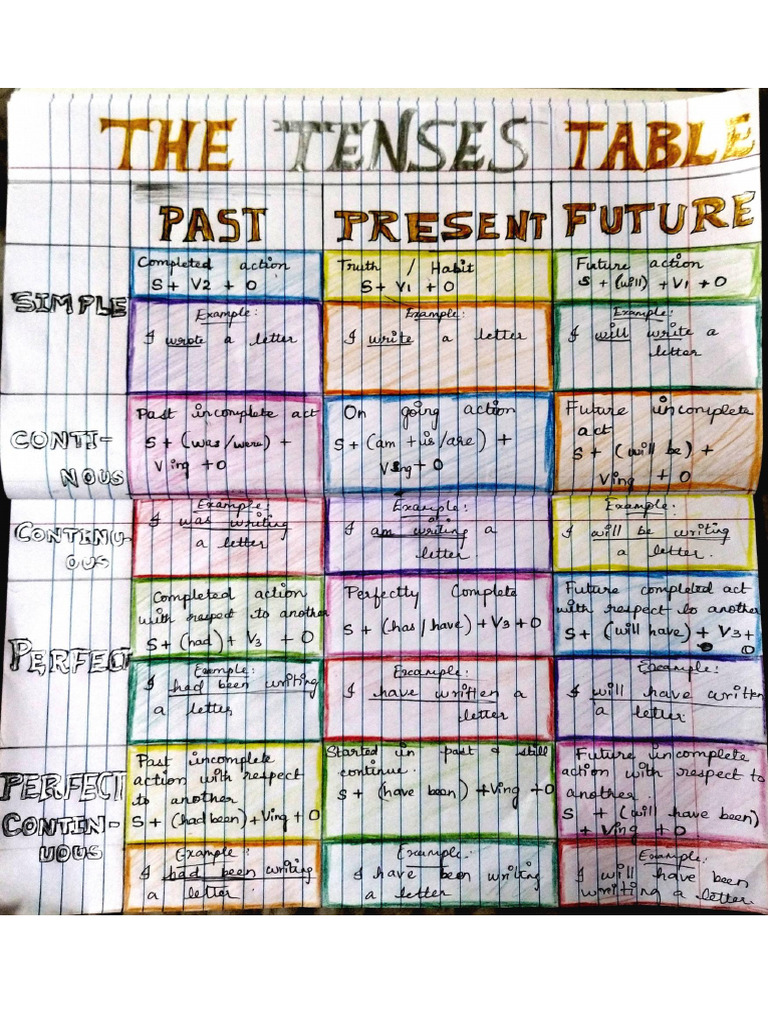 THE TENSES TABLE
PAST PRESENT FUTURE
SIMPLE
Completed action
S + V2 + O
Truth / Habit
S + V1 + O
Future action
S + (will) + V1 + O
Example:
I wrote a letter
Example:
I write a letter
Example:
I will write a
letter
CONTI-
NOUS
Past incomplete act
S + (was/were) +
Ving + O
On going action
S + (am + is/are) +
Ving + O
Future uncomplete
act
S + (will be) +
Ving + O
CONTENU-
OUS
Example:
I was writing
a letter
Example:
I am writing a
letter.
Example:
I will be writing
a letter.
PERFECT
Completed action
with respect to another
S + (had) + V3 + O
Perfectly Complete
S + (has/have) + V3 + O
Future completed act
with respect to another
S + (will have) + V3 +
O
Example:
I had been writing
a letter
Example:
I have written a
letter
Example:
I will have written
a letter.
PERFECT
CONTIN-
UOUS
Past incomplete
action with respect
to another
S + (had been) + Ving + O
Started in past & still
continue.
S + (have been) + Ving + O
Future incomplete
action with respect to
another
S + (will have been)
+ Ving + O
Example:
I had been writing
a letter
Example:
I have been writing
a letter
Example:
I will have been
writing a letter.